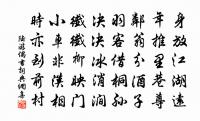 身放江湖遠
年推里巷尊
鄰翁分子
羽客借桐孫
決決冰消澗
纖纖柳映門
小車非漢相
時亦到前村
陸游偶書詞典網集